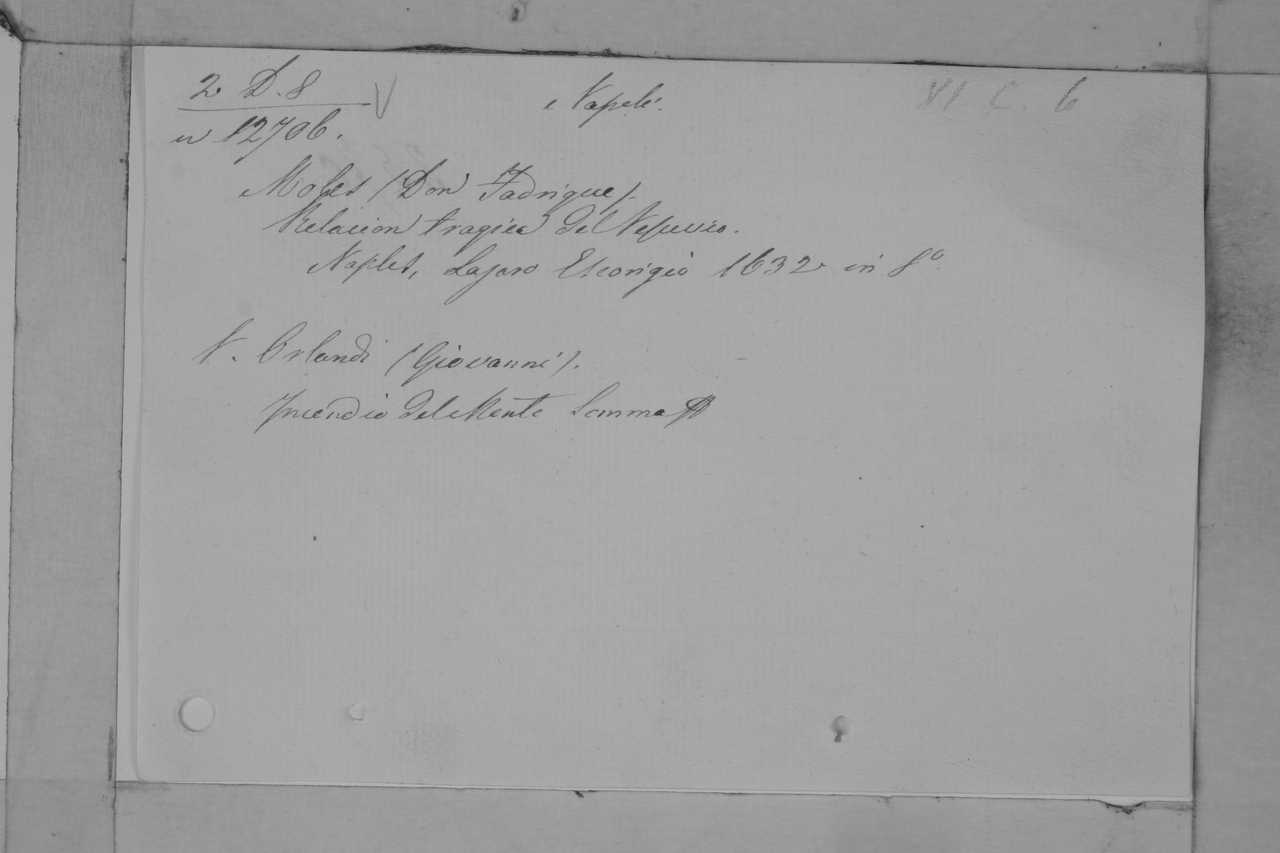 2 D. 8 V Napoli. VI C. 6
n 12706.
Moles (Don Fadrique).
Relacion tragica del Vesuvio.
Naples, Lazaro Escorigio 1632 in 8º
V. Orlandi (Giovanni).
Incendio del Monte Somma